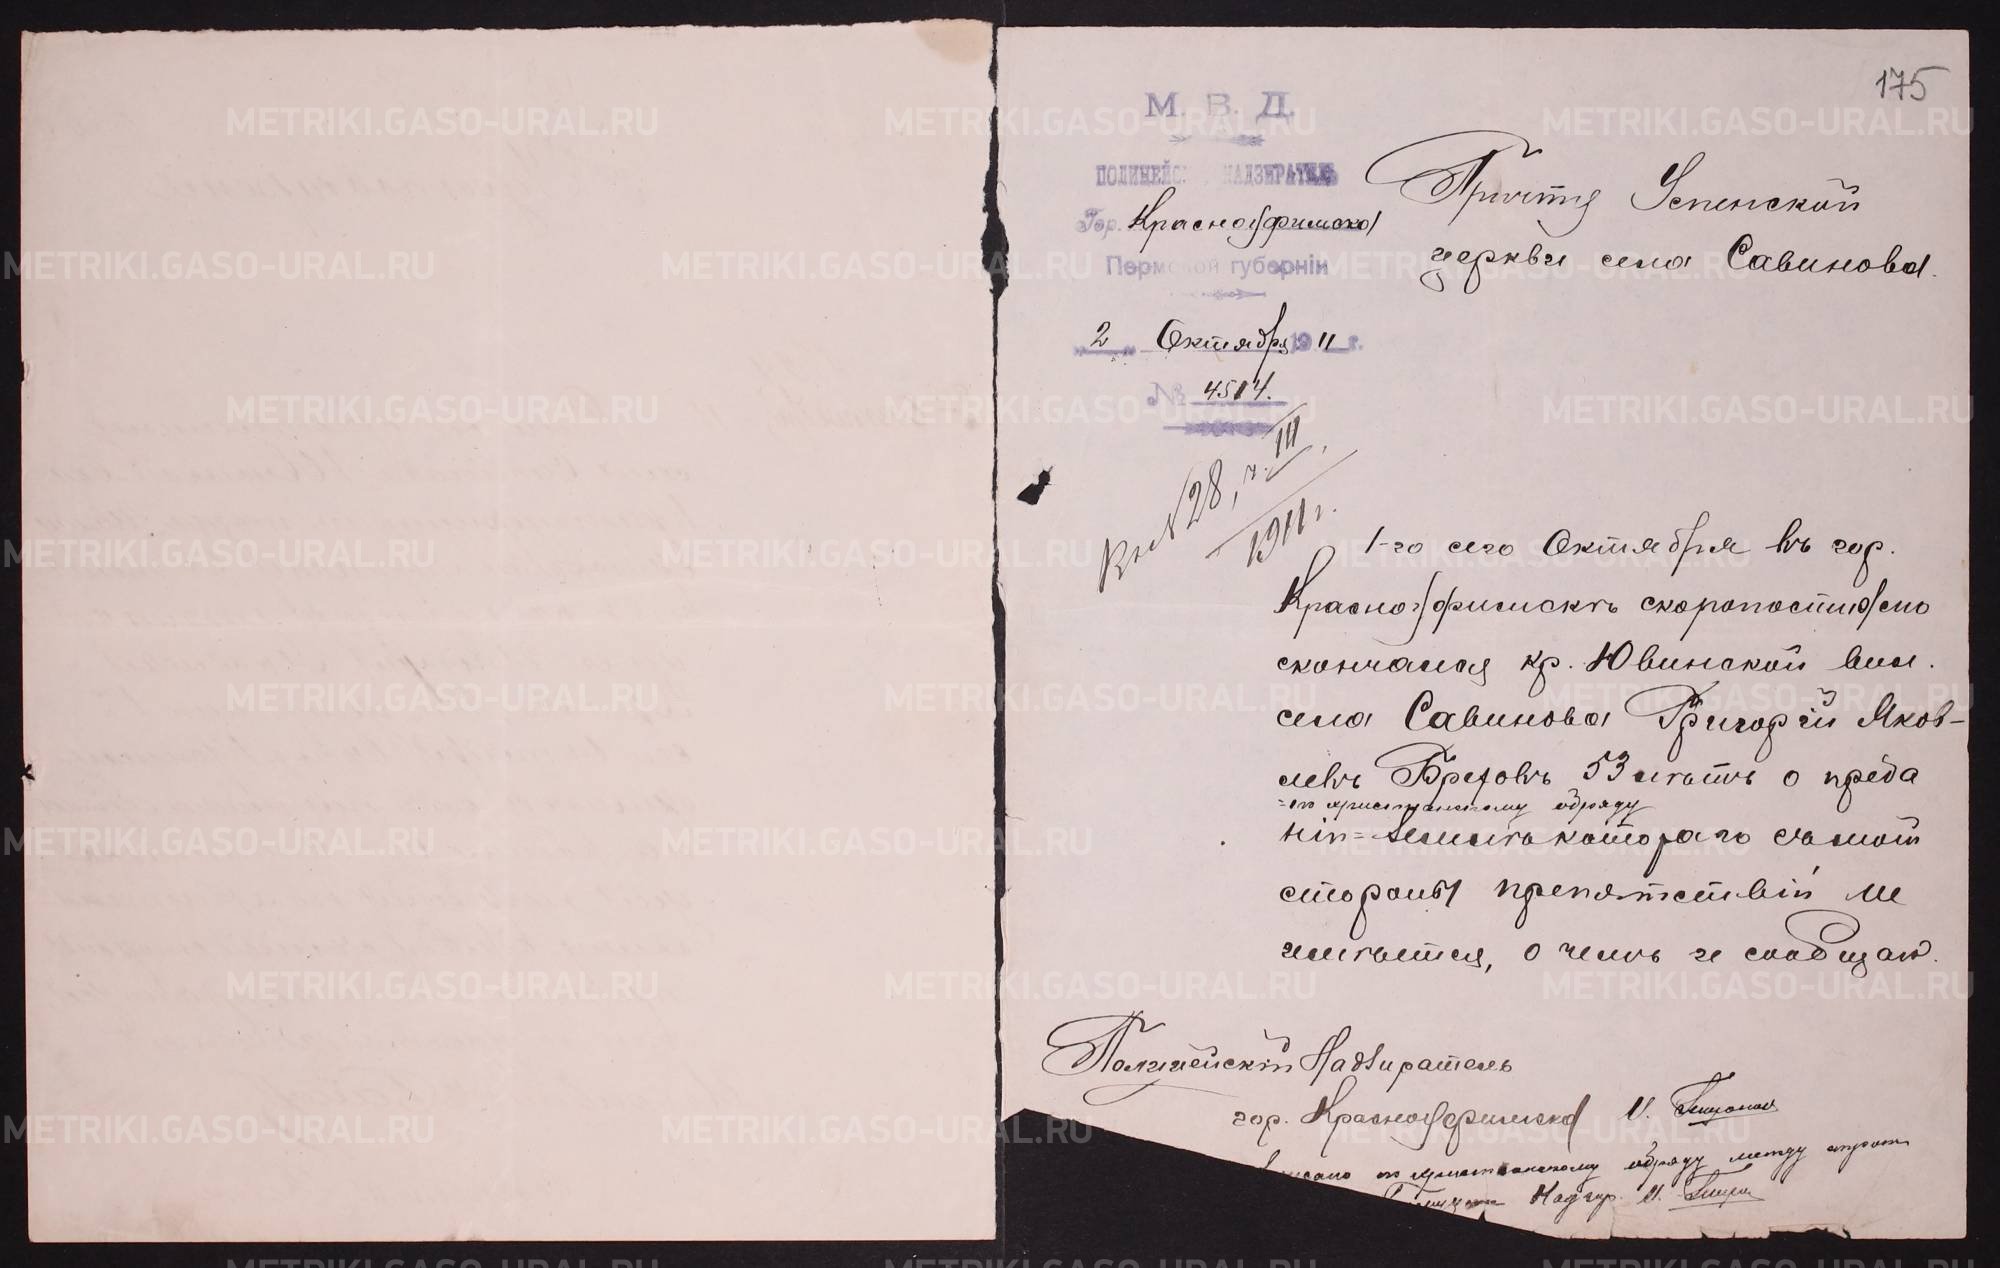 175
М. В. Д.
ПОЛИЦЕЙСК НАДЗИРАТЕЛЬ
Гор. Красноуфимска
Пермской губерніи
„2“ Октября 1911 г.
№ 4514.
Вх № 28, ч. III
1911 г.
Причту Успенской
церкви села Савинова.
1-го сего Октября въ гор.
Красноуфимскѣ скоропостижно
скончался кр. Ювинской вол.
села Савинова Григорій Яков-
левъ Брехов 53 лѣтъ о преда
=по христіанскому обряду
ніи= землѣ котораго съ моей
стороны препятствій не
имѣется, о чемъ и сообщаю.
Полицейскій Надзиратель
гор. Красноуфимска И.
писано по христіанскому обряду между строк
Надзир. И.
METRIKI.GASO-URAL.RU